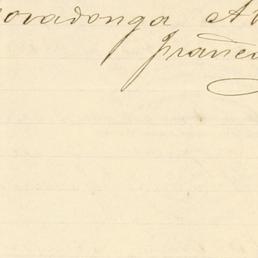 ovadonga A
Franc